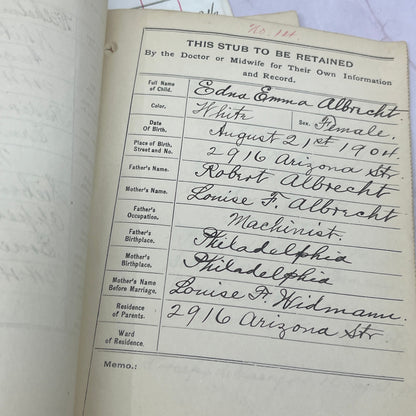 No. 14.
THIS STUB TO BE RETAINED
By the Doctor or Midwife for Their Own Information
and Record.
Full Name of Child. Edna Emma Albrecht.
Color. White Sex. Female.
Date Of Birth. August 21st 1904.
Place of Birth, Street and No. 2916 Arizona Str.
Father's Name. Robert Albrecht
Mother's Name. Louise F. Albrecht
Father's Occupation. Machinist.
Father's Birthplace. Philadelphia
Mother's Birthplace. Philadelphia
Mother's Name Before Marriage. Louise F. Widmann.
Residence of Parents. 2916 Arizona Str.
Ward of Residence.
Memo.: